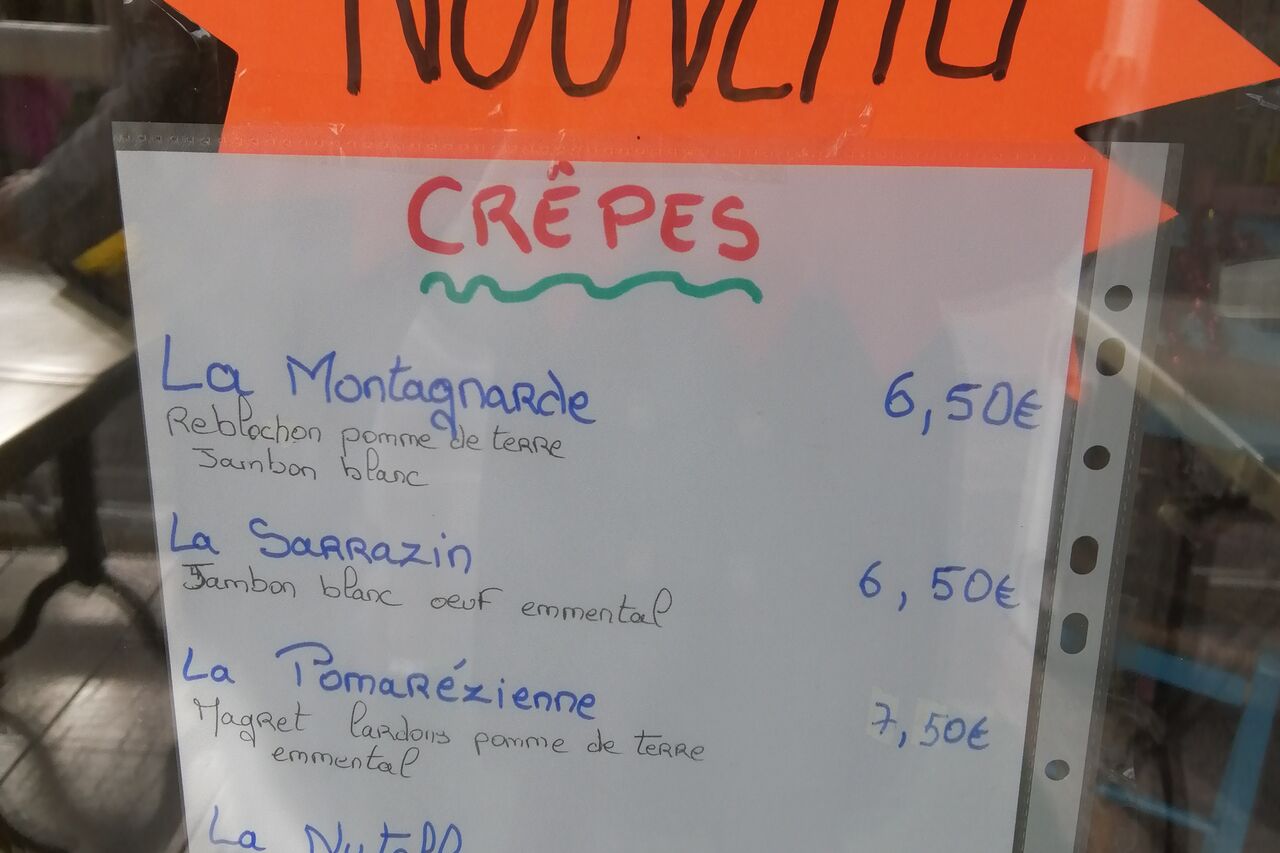 NOUVEAU
CRÊPES
La Montagnarde 6,50€
Reblochon pomme de terre
Jambon blanc
La Sarrazin 6,50€
Jambon blanc oeuf emmental
La Pomarézienne 7,50€
Magret lardons pomme de terre
emmental
La